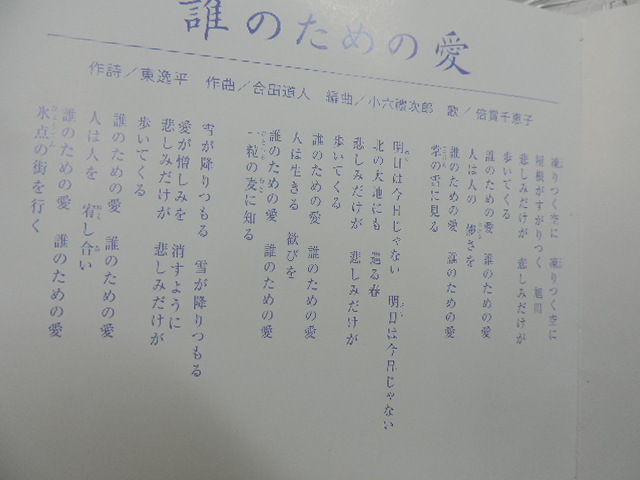 誰のための愛
作詩/東逸平 作曲/合田道人 編曲/小六禮次郎 歌/倍賞千恵子
凍りつく空に 凍りつく空に
屋根がすがりつく 旭川
悲しみだけが 悲しみだけが
歩いてくる
誰のための愛 誰のための愛
人は人の 怖さを
誰のための愛 誰のための愛
掌の雪に見る
明日は今日じゃない 明日は今日じゃない
北の大地にも 巡る春
悲しみだけが 悲しみだけが
歩いてくる
誰のための愛 誰のための愛
人は生きる 歓びを
誰のための愛 誰のための愛
一粒の麦に知る
雪が降りつもる 雪が降りつもる
愛が憎しみを 消すように
悲しみだけが 悲しみだけが
歩いてくる
誰のための愛 誰のための愛
人は人を 宥し合い
誰のための愛 誰のための愛
氷点の街を行く